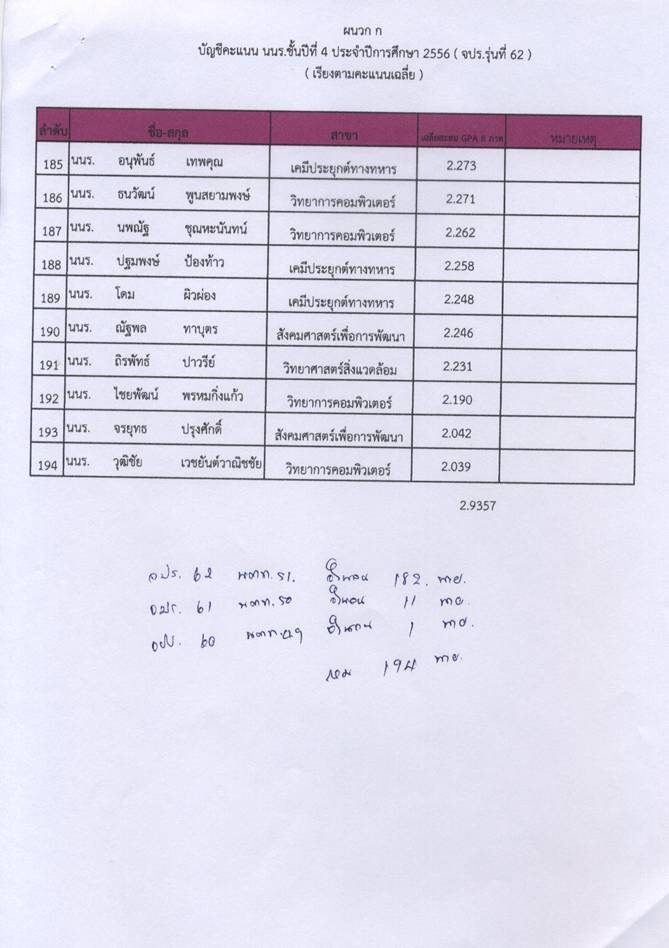 ผนวก ก
บัญชีคะแนน นนร.ชั้นปีที่ 4 ประจำปีการศึกษา 2556 ( จปร.รุ่นที่ 62 )
( เรียงตามคะแนนเฉลี่ย )
ลำดับ ชื่อ-สกุล สาขา เฉลี่ยสะสม GPA 8 ภาค หมายเหตุ
185 นนร. อนุพันธ์ เทพคุณ เคมีประยุกต์ทางทหาร 2.273
186 นนร. ธนวัฒน์ พูนสยามพงษ์ วิทยาการคอมพิวเตอร์ 2.271
187 นนร. นพณัฐ ชุณหะนันทน์ วิทยาการคอมพิวเตอร์ 2.262
188 นนร. ปฐมพงษ์ ป้องท้าว เคมีประยุกต์ทางทหาร 2.258
189 นนร. โดม ผิวผ่อง เคมีประยุกต์ทางทหาร 2.248
190 นนร. ณัฐพล ทาบุตร สังคมศาสตร์เพื่อการพัฒนา 2.246
191 นนร. ถิรพัทธ์ ปาวรีย์ วิทยาศาสตร์สิ่งแวดล้อม 2.231
192 นนร. ไชยพัฒน์ พรหมกิ่งแก้ว วิทยาการคอมพิวเตอร์ 2.190
193 นนร. จรยุทธ ปรุงศักดิ์ สังคมศาสตร์เพื่อการพัฒนา 2.042
194 นนร. วุฒิชัย เวชยันต์วาณิชชัย วิทยาการคอมพิวเตอร์ 2.039
2.9357
จปร. 62 ตทท.51. จำนวน 182. นาย.
จปร. 61 ตทท.50 จำนวน 11 นาย
จปร. 60 ตทท.49 จำนวน 1 นาย.
รวม 194 นาย.